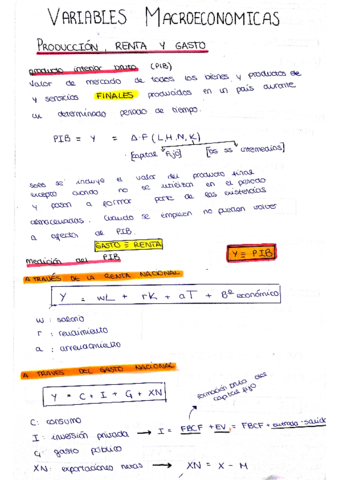 VARIABLES MACROECONOMICAS
PRODUCCIÓN, RENTA Y GASTO
producto interior bruto (PIB)
Valor de mercado de todos los bienes y productos de
y servicios FINALES producidos en un país durante
un determinado periodo de tiempo.
PIB = Y = A·F(L,H,N,K)
[capital fijo] [bs ss intermedios]
Solo se incluye el valor del producto final
excepto cuando no se utilizan en el periodo
y pasan a formar parte de las existencias
almacenadas. Cuando se empleen no pueden volver
a efectos de PIB.
GASTO ≡ RENTA
medición del PIB
Y ≡ PIB
A TRAVÉS DE LA RENTA NACIONAL
Y = wL + rK + aT + Bº económico
w: salario
r: rendimiento
a: arrendamiento
A TRAVÉS DEL GASTO NACIONAL
formación bruta de
capital fijo
Y = C + I + G + XN
C: consumo
I: inversión privada → I = FBCF + EV = FBCF +
G: gasto público
XN: exportaciones netas → XN = X - M